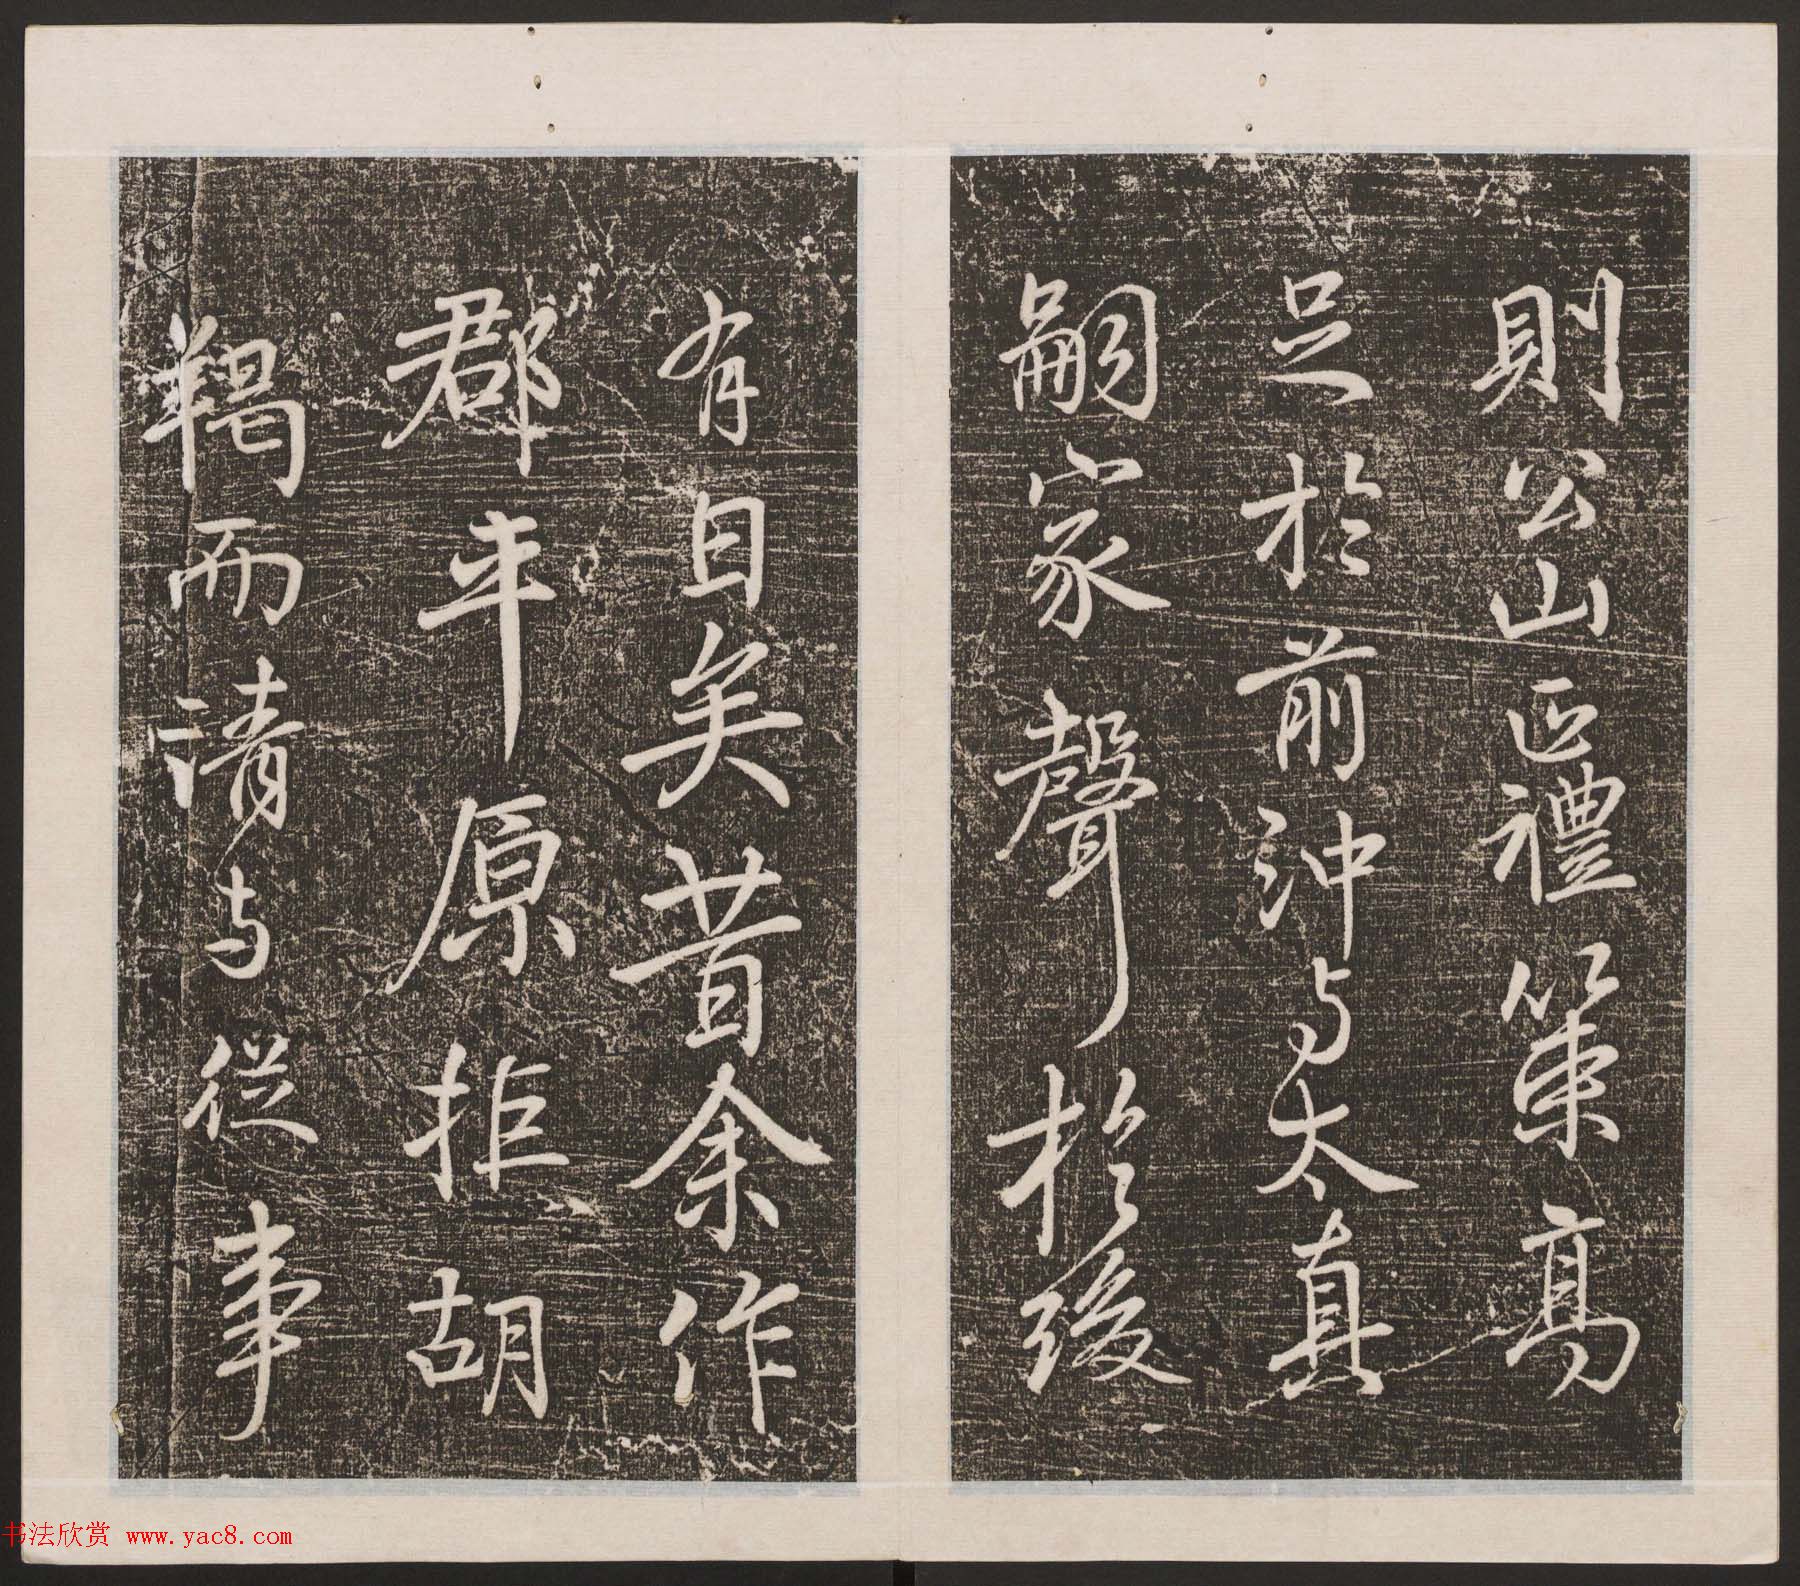 則公山正禮策高
足於前沖与太真
嗣家聲於後
有日矣昔余作
郡平原拒胡
羯而請与從事
书法欣赏 www.yac8.com